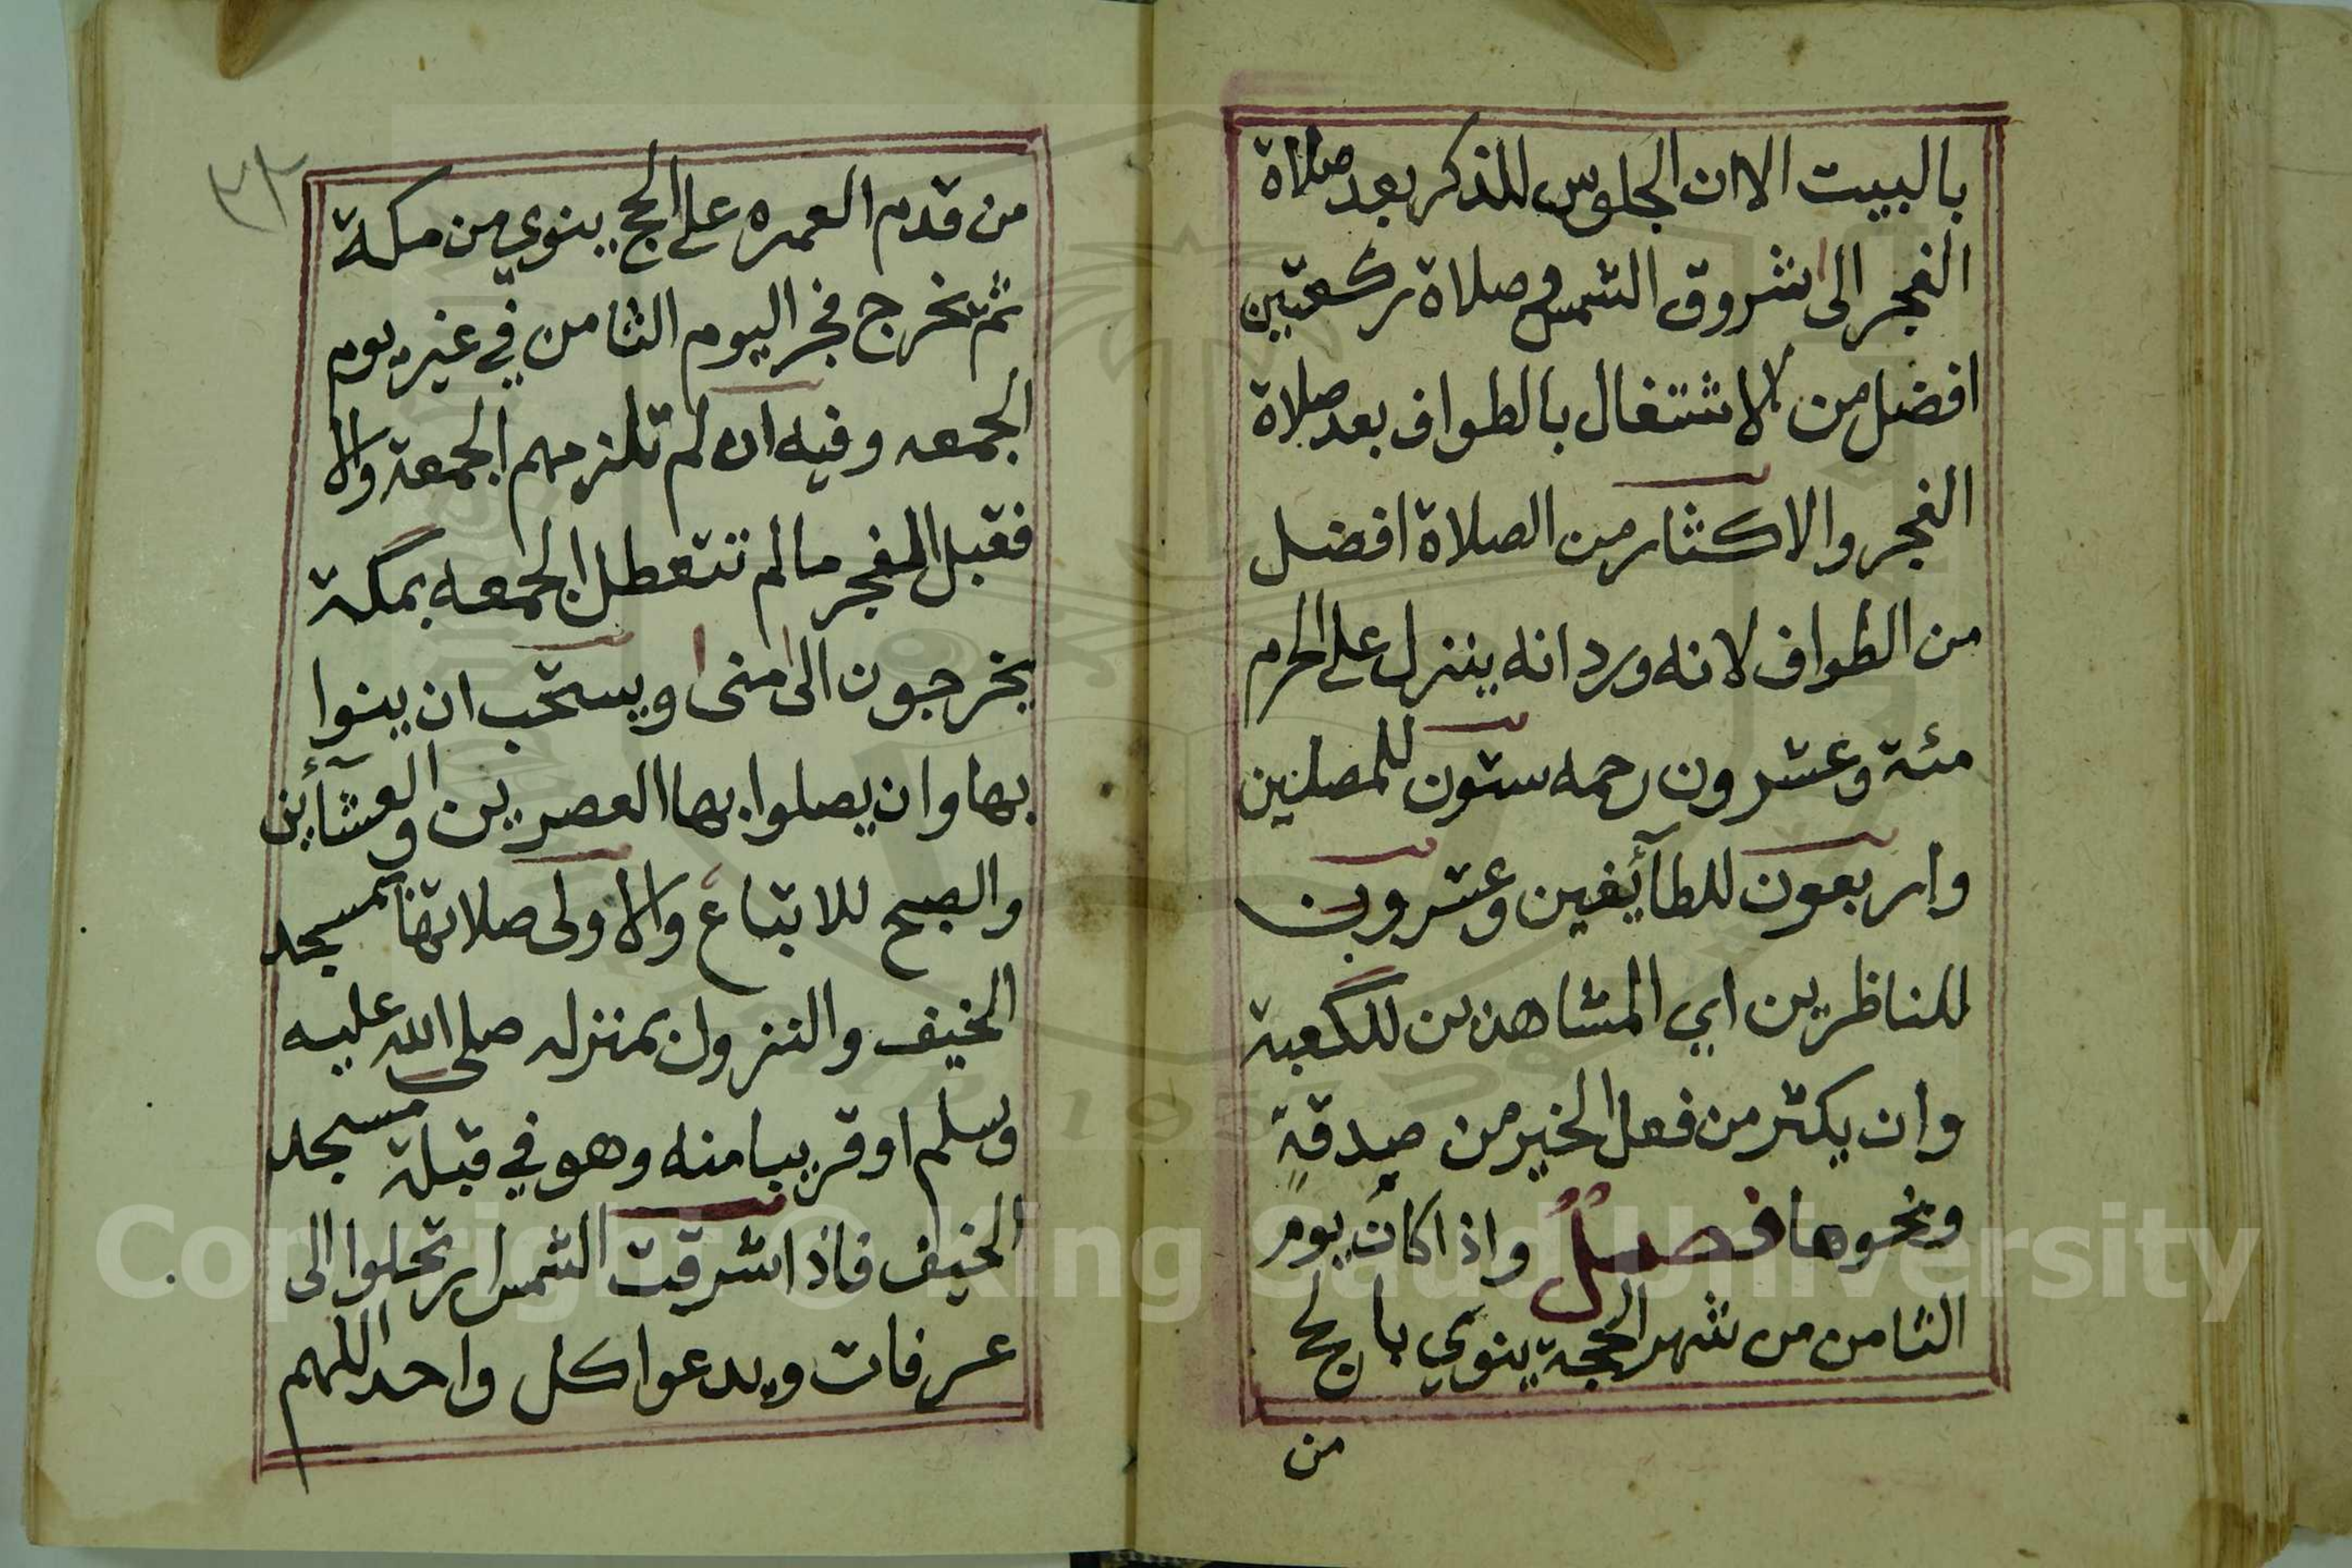 بالبيت الا ان الجلوس للذكر بعد صلاة
الفجر الى اشروق الشمس وصلاة ركعتين
افضل من الاشتغال بالطواف بعد صلاة
الفجر والاكثار من الصلاة افضل
من الطواف لانه ورد انه ينزل على الحرم
مئة وعشرون رحمه ستون للمصلين
واربعون للطآئفين وعشرون
للناظرين اي المشاهدين للكعبة
وان يكثر من فعل الخير من صدقةٍ
ونحوها فصلٌ واذا كان يوم
الثامن من شهر الحجة ينوي بالحج
من
٣٢
من قدم العمره على الحج ينوي من مكة
ثم يخرج فجر اليوم الثامن في غير يوم
الجمعه وفيه ان لم تلزمهم الجمعة والا
فقبل الفجر مالم تتعطل الجمعه بمكة
يخرجون الى منى ويستحب ان ينوا
بها وان يصلوا بها العصرين والعشآئين
والصبح للاتباع والاولى صلاتها بمسجد
الخيف والنزول بمنزله صلى الله عليه
وسلم او قريبا منه وهو في قبلة مسجد
الخيف فاذا اشرقت الشمس ارتحلوا الى
عرفات ويدعوا كل واحد اللهم
Copyright © King Saud University